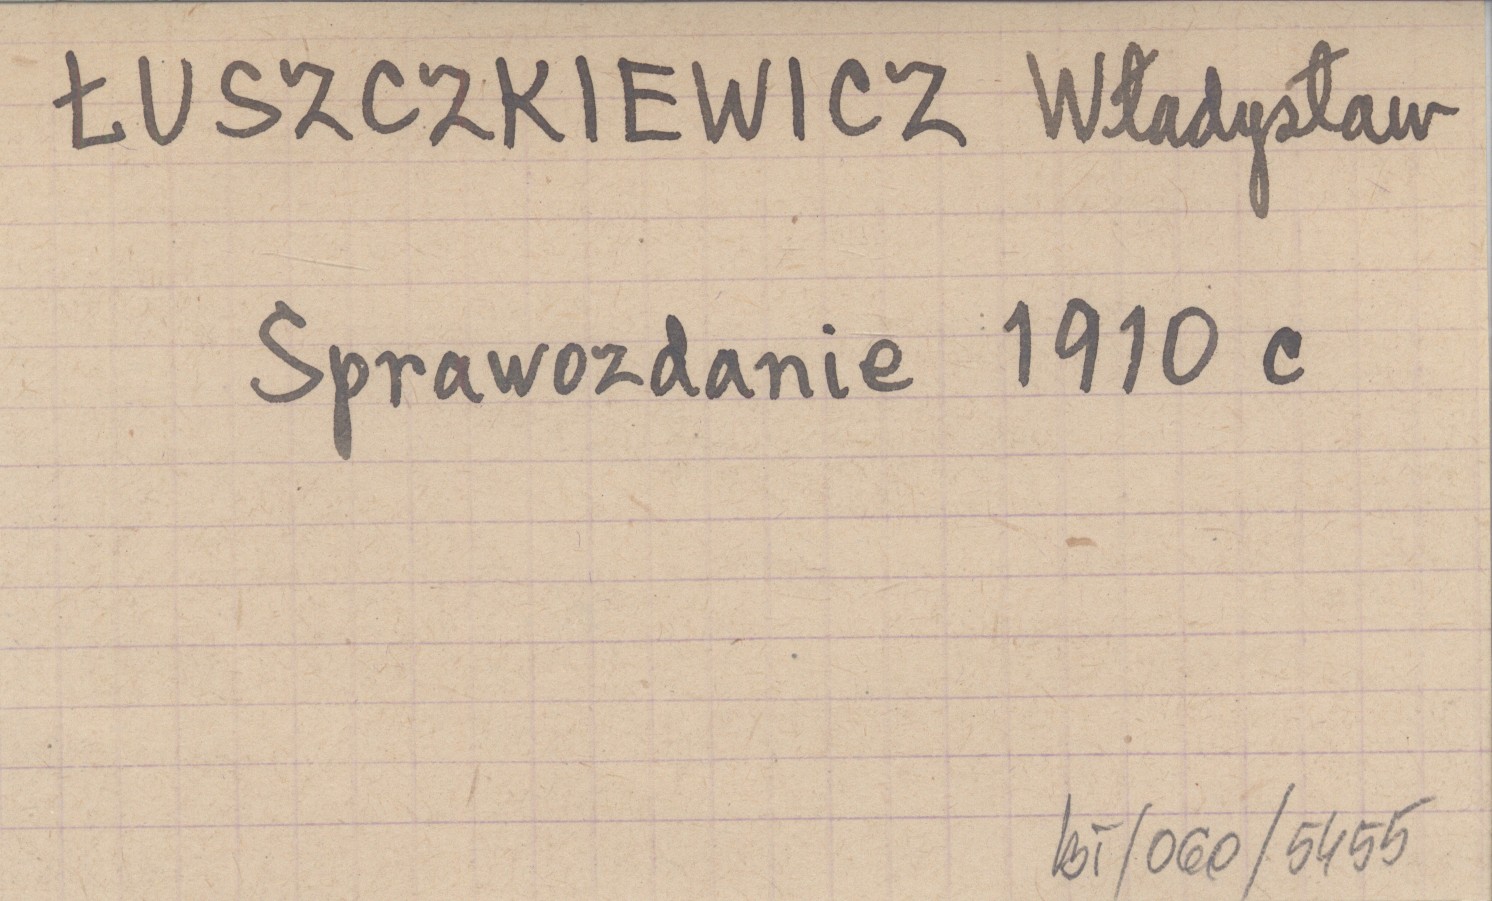 ŁUSZCZKIEWICZ Władysław
Sprawozdanie 1910 c
/060/5455